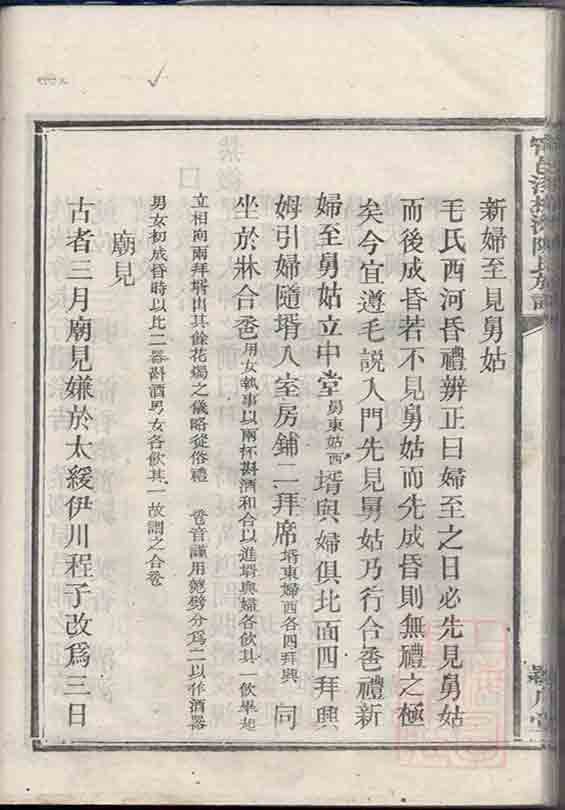 新婦至見舅姑
毛氏西河昏禮辨正曰婦至之日必先見舅姑
而後成昏若不見舅姑而先成昏則無禮之極
矣今宜遵毛說入門先見舅姑乃行合卺禮新
婦至舅姑立中堂舅東姑西壻與婦俱北面四拜興
姆引婦隨壻入室房鋪二拜席壻東婦西各四拜興同
坐於牀合卺用女執事以兩杯斟酒和合以進壻與婦各飲其一飲畢起
立相向兩拜壻出其餘花燭之儀略從俗禮 卺音謹用匏劈分爲二以作酒器
男女初成昏時以此二器斟酒男女各飲其一故謂之合卺
廟見
古者三月廟見嫌於太緩伊川程子改爲三日